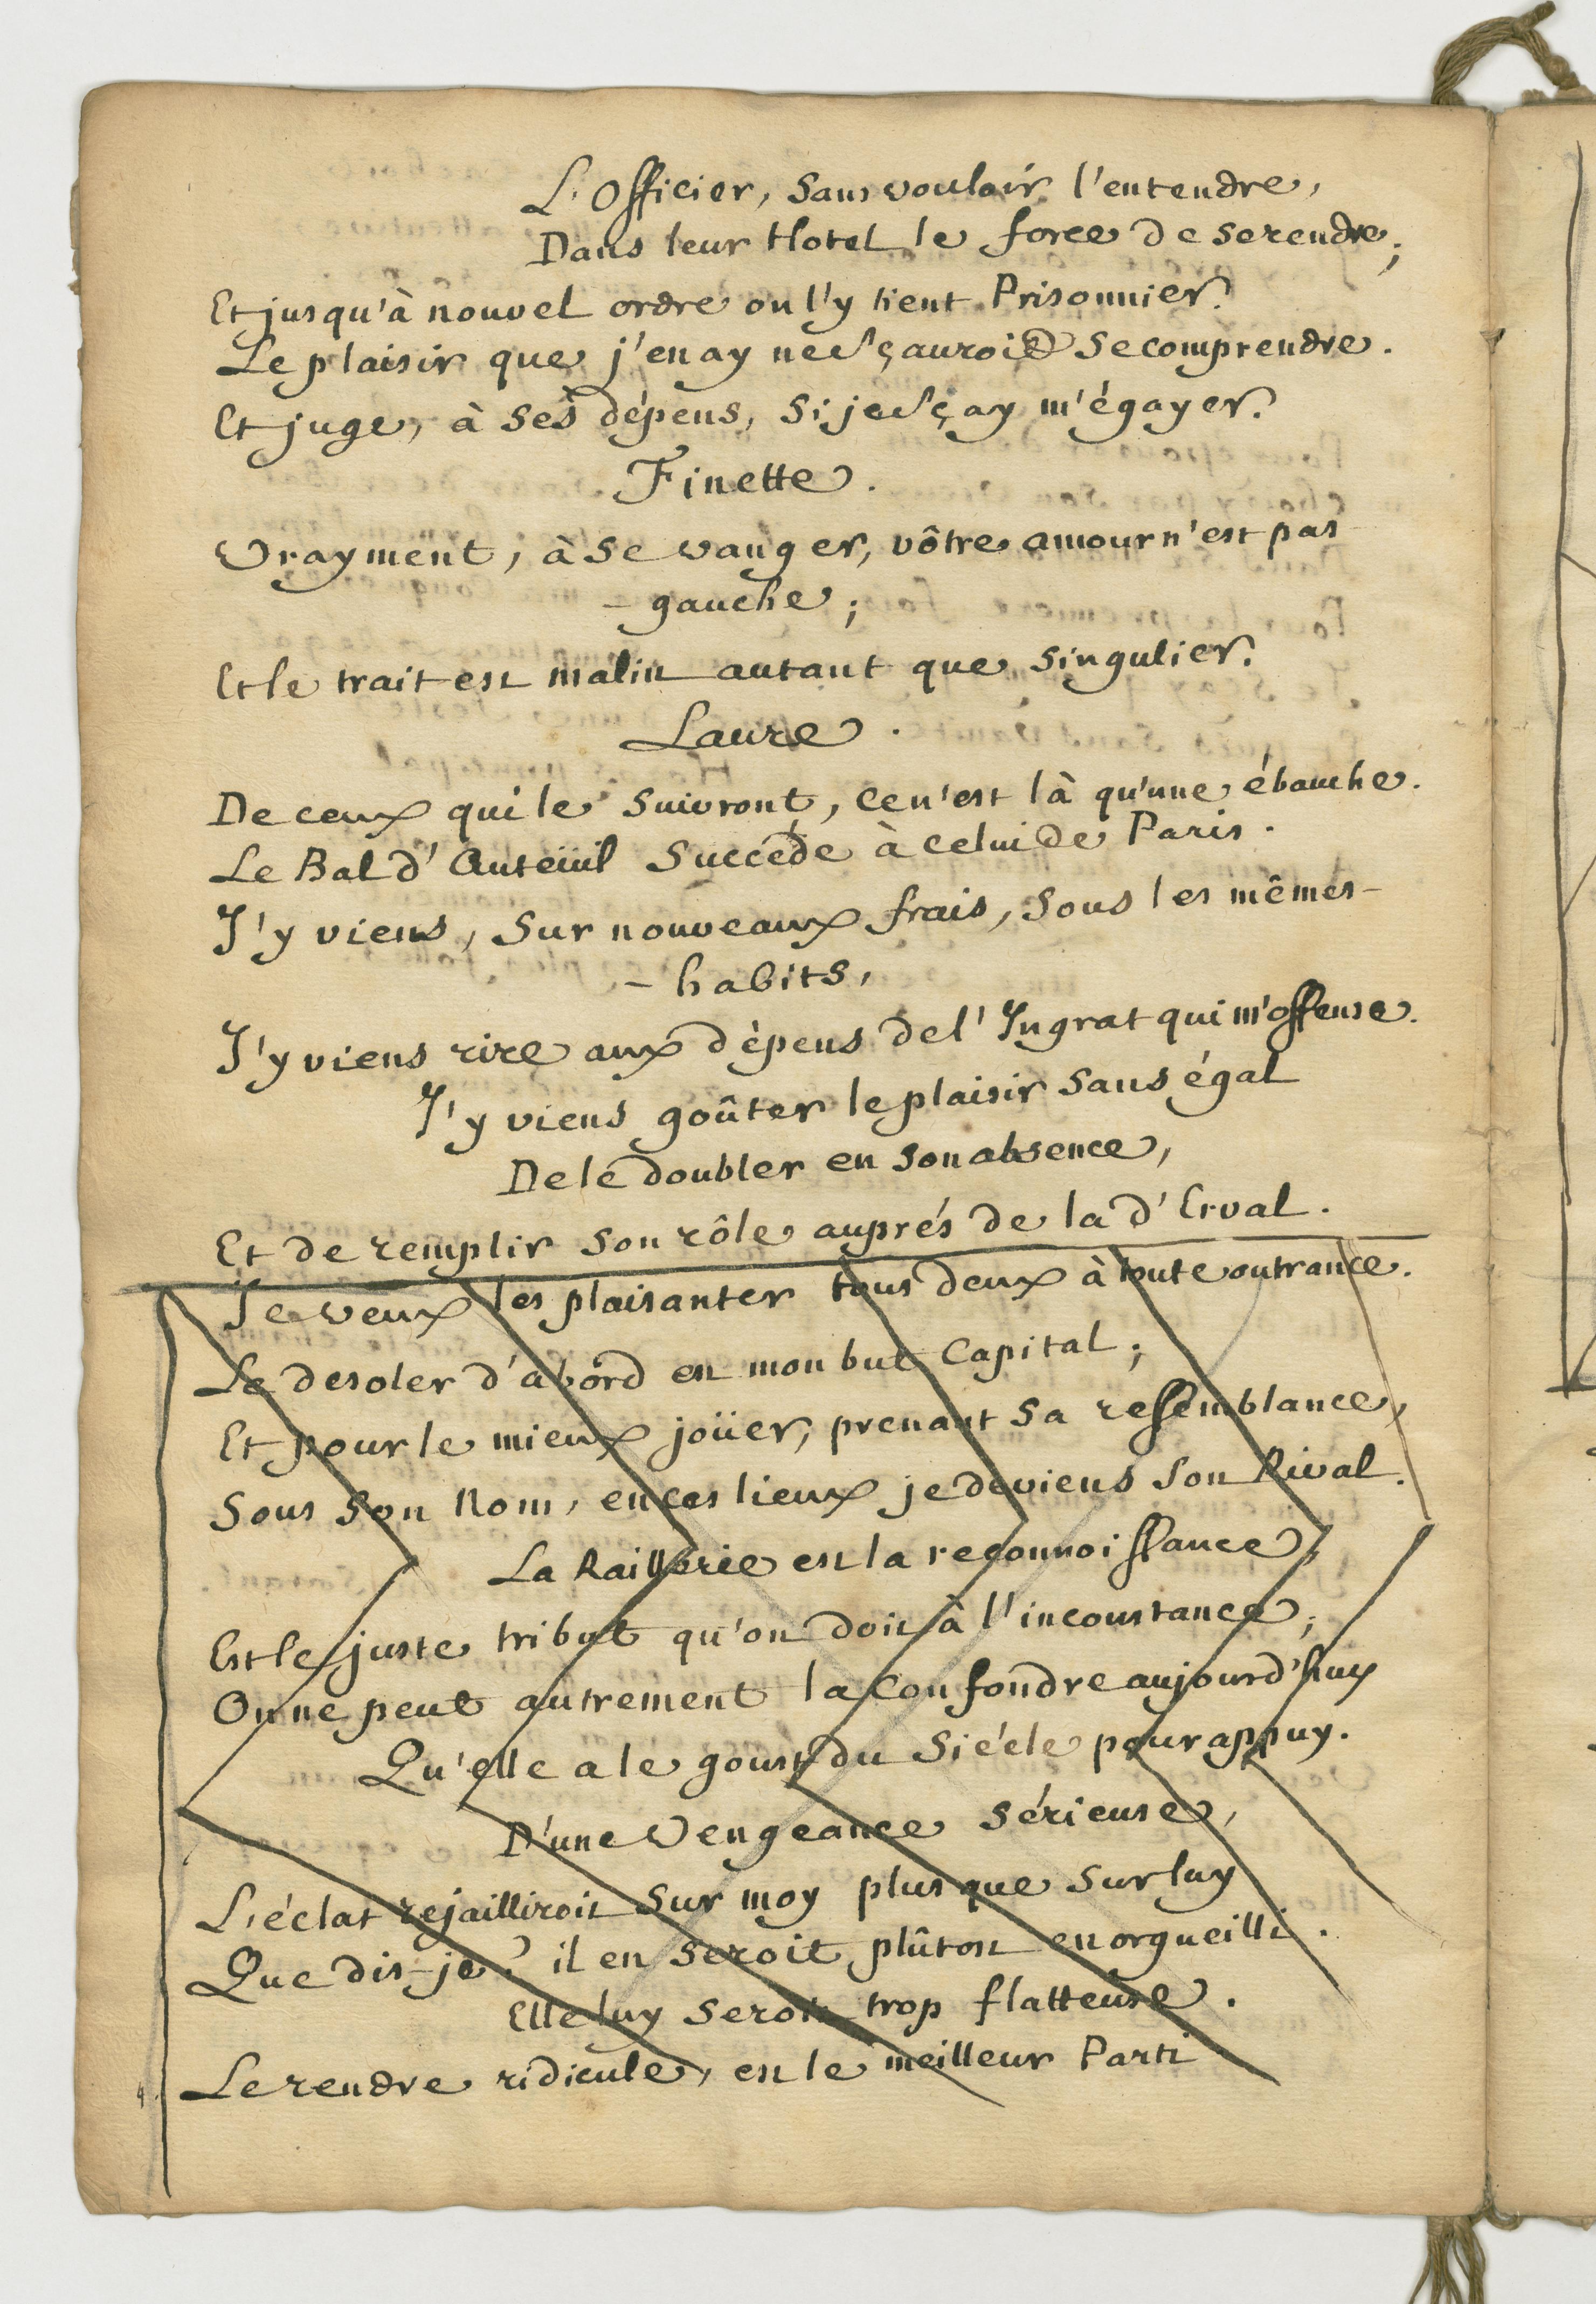 L'Officier, Sans vouloir l'entendre,
Dans leur Hotel le force de se rendre;
Et jusqu'à nouvel ordre on l'y tient Prisonnier.
Le plaisir que j'en ay ne sçauroit se comprendre.
Et juge, à ses dépens, si je sçay m'égayer.
Finette.
Vrayment, à se vanger, vôtre amour n'est pas
- gauche;
Et le trait est malin autant que singulier.
Laure.
De ceux qui le suivront, ce n'est là qu'une ébauche.
Le Bal d'Auteüil succéde à celui de Paris.
J'y viens, sur nouveaux frais, sous les mêmes -
- habits,
J'y viens rire aux dépens de l'Ingrat qui m'offense.
J'y viens goûter le plaisir sans égal
De le doubler en son absence,
Et de remplir son rôle auprés de la d'Erval.
Je veux les plaisanter tous deux à toute outrance.
Le desoler d'abord est mon but Capital;
Et pour le mieux joüer, prenant sa ressemblance,
Sous son Nom, en ces lieux je deviens son Rival.
La Raillerie est la reconnoissance,
Est le juste tribut qu'on doit à l'inconstance;
On ne peut autrement la confondre aujourd'huy
Qu'elle a le goust du Siécle pour appuy.
D'une Vengeance sérieuse,
L'éclat rejailliroit sur moy plus que sur luy
Que dis-je? il en seroit plûtost enorgueilli.
Elle luy seroit trop flatteuse.
Le rendre ridicule, est le meilleur Parti